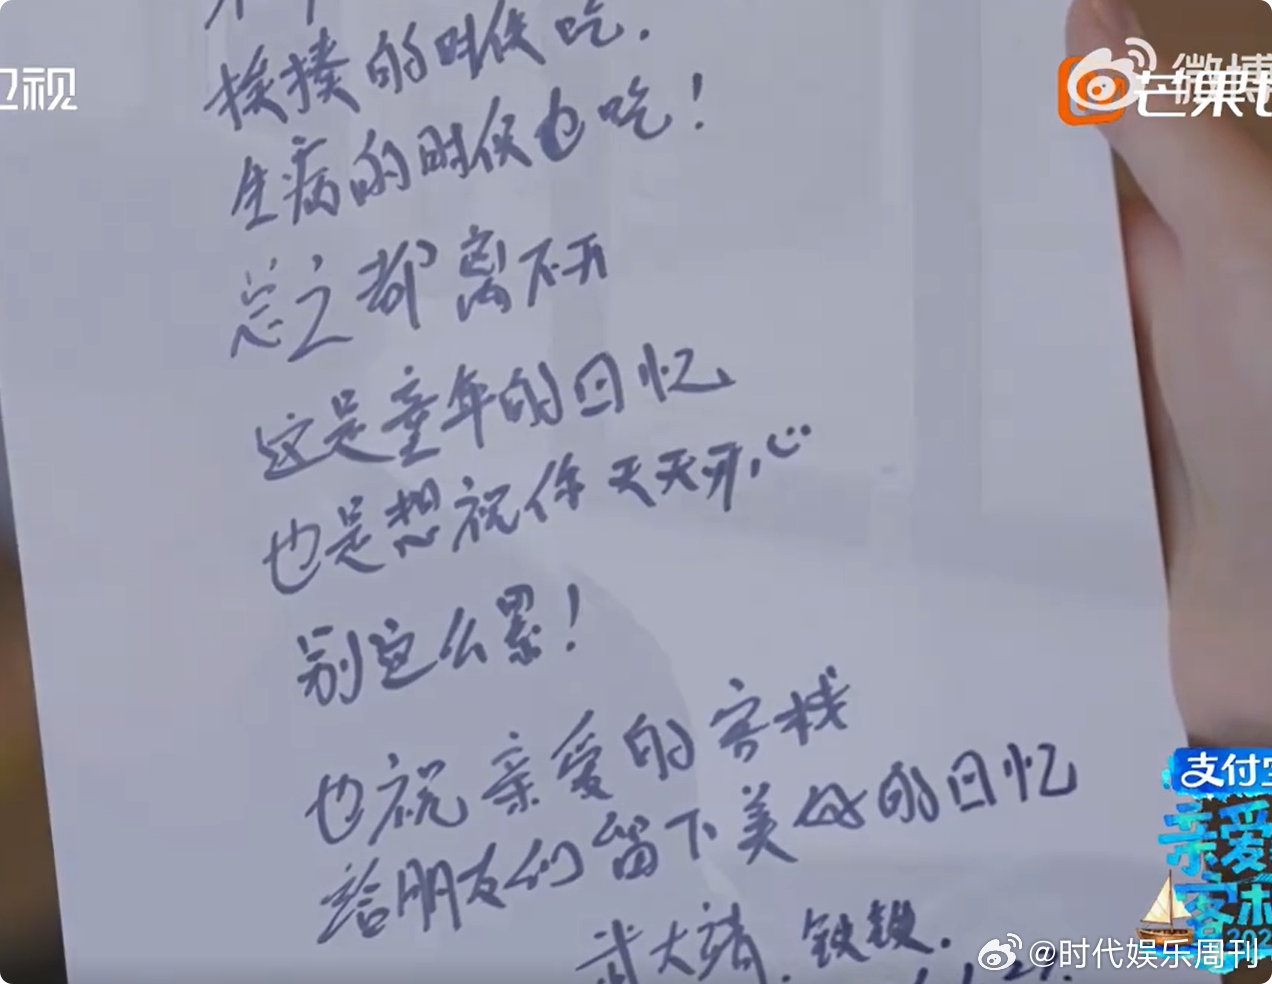 挨揍的时候吃.
生病的时候也吃!
总之都离不开
这是童年的回忆
也是想祝你天天开心
别这么累!
也祝亲爱的客栈
给朋友们留下美好的回忆
武大靖. 铁铁.
卫视
微博
芒果
支付宝
亲爱
客栈
202
@时代娱乐周刊